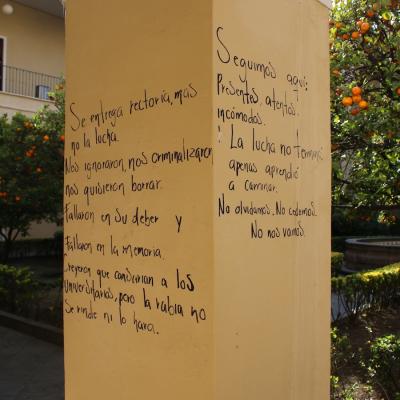 Se entrega rectoría, mas
no la lucha.
Nos ignoraron, nos criminalizaron,
nos quisieron borrar.
Fallaron en su deber y
Fallaron en la memoria.
Creyeron que cansarian a los
Universitarios, pero la rabia no
se rinde ni lo hará.
Seguimos aquí:
Presentes, atentos,
incómodos.
La lucha no terminó
apenas aprendió
a caminar.
No olvidamos. No cedemos.
No nos vamos.